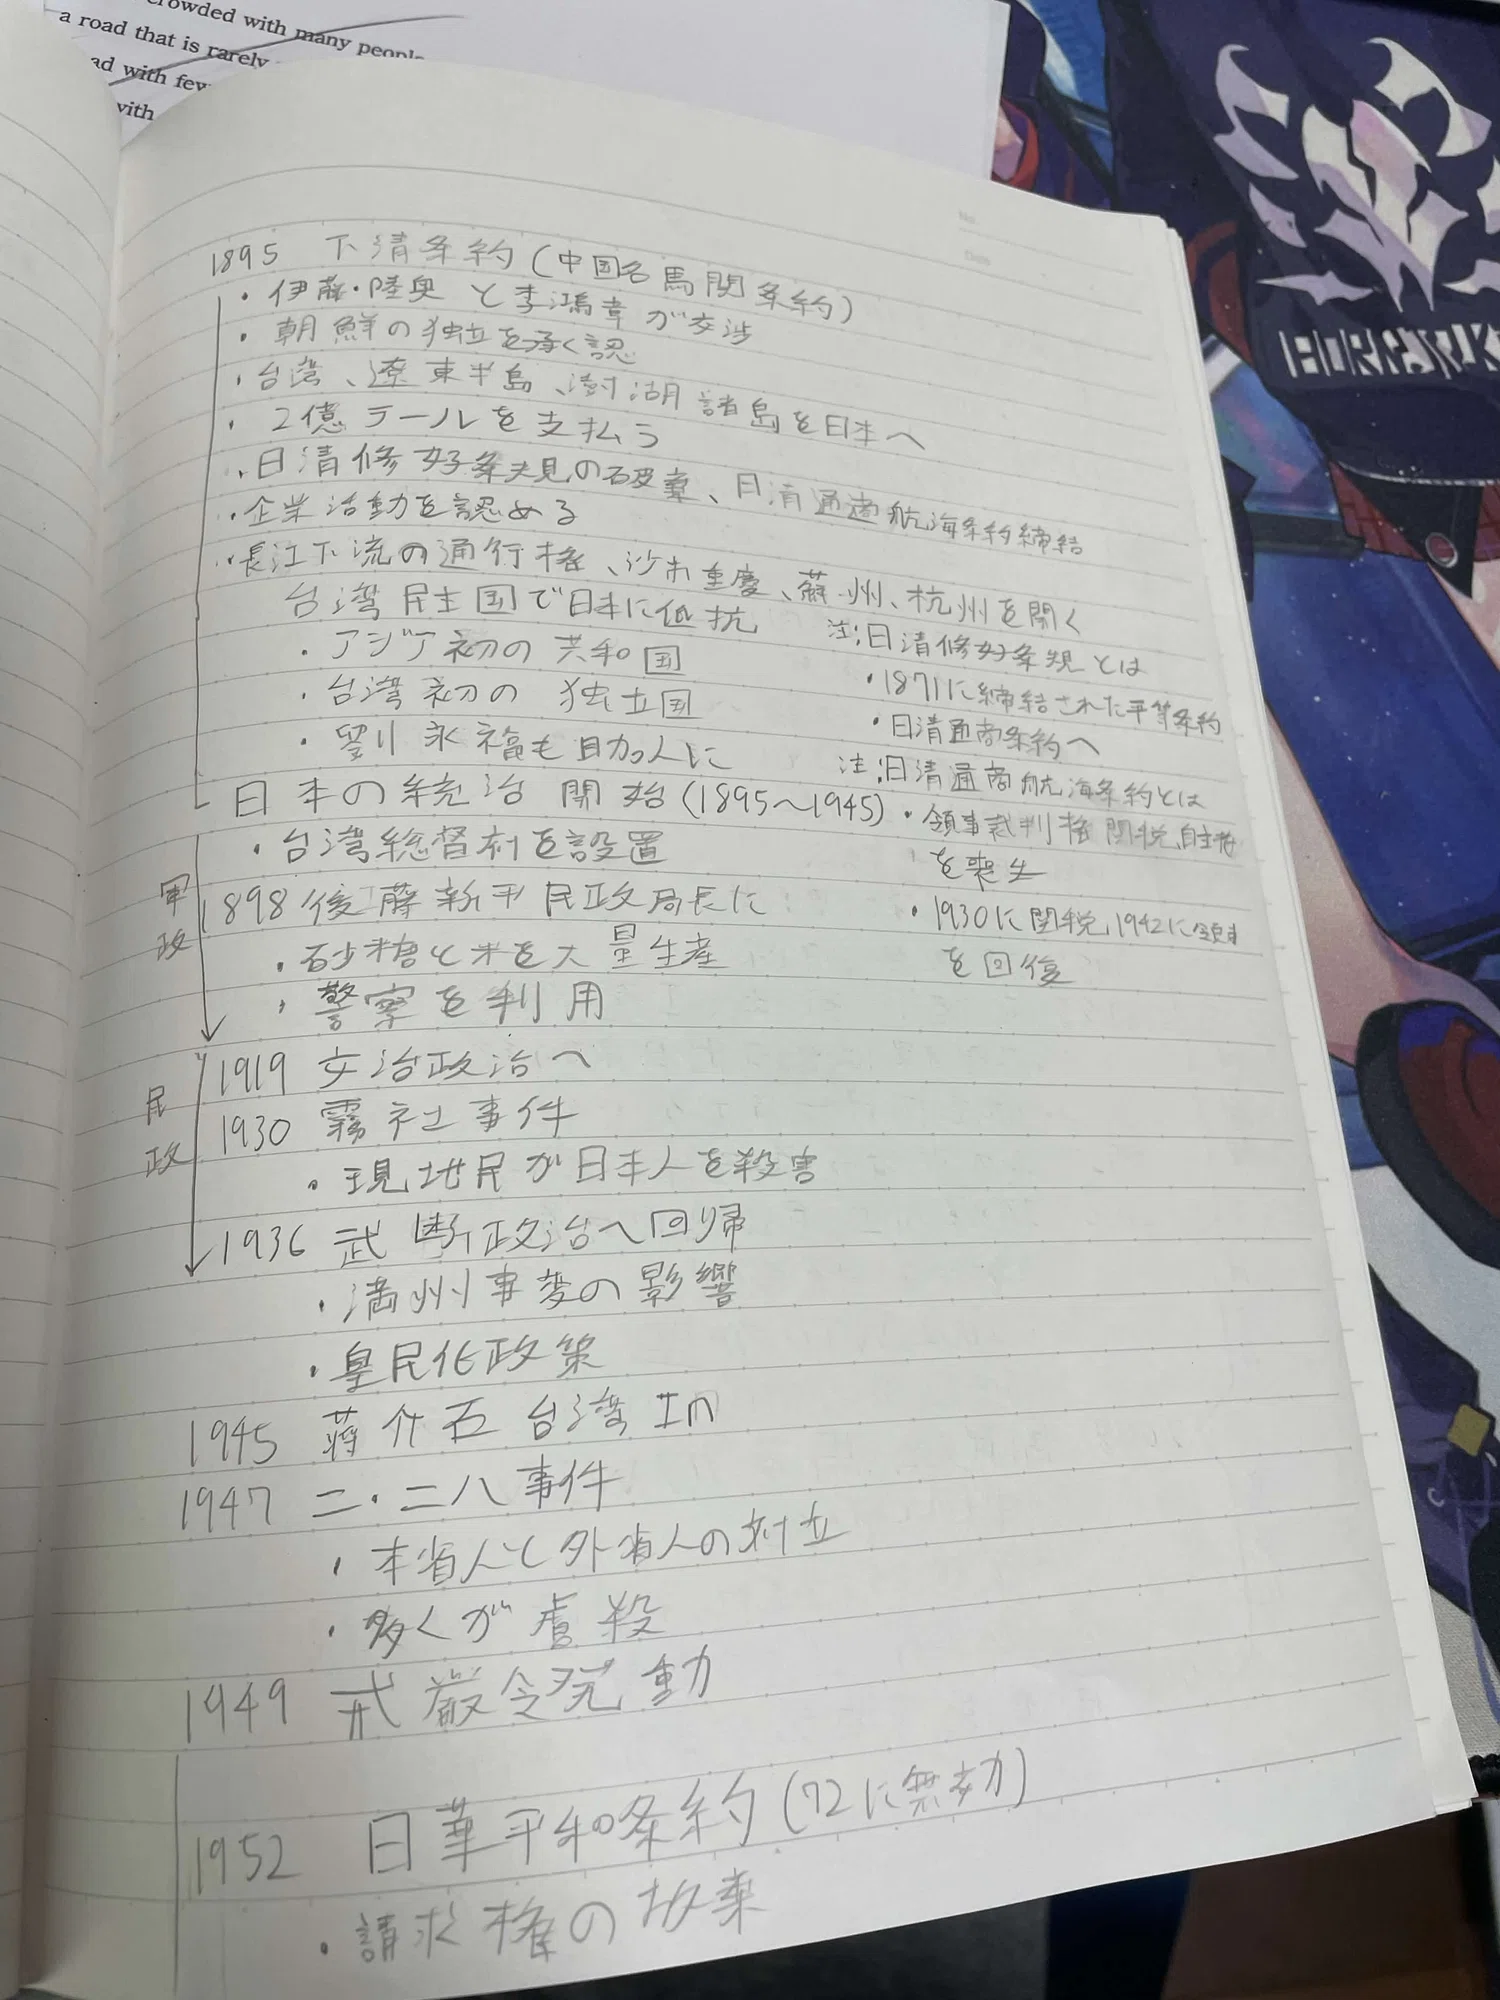 crowded with many people
a road that is rarely
ad with few
with
No.
Date
1895 下清条約(中国名馬関条約)
・伊藤・陸奥と李鴻章が交渉
・朝鮮の独立を承く認
・台湾、遼東半島、澎湖諸島を日本へ
・2億テールを支払う
・日清修好条規の破棄、日清通商航海条約締結
・企業活動を認める
・長江下流の通行権、沙市重慶、蘇州、杭州を開く
台湾民主国で日本に低抗
・アジア初の共和国
・台湾初の独立国
・劉永福も助人に
注:日清修好条規とは
・1871に締結された平等条約
・日清通商条約へ
注:日清通商航海条約とは
・領事裁判権関税自主権
を喪失
・1930に関税,1942に領事
を回復
日本の統治開始(1895〜1945)
・台湾総督府を設置
軍政
1898 後藤新平民政局長に
・砂糖と米を大量生産
・警察を利用
民政
1919 文治政治へ
1930 霧社事件
・現地民が日本人を殺害
1936 武断政治へ回帰
・満州事変の影響
・皇民化政策
1945 蒋介石台湾In
1947 二・二八事件
・本省人と外省人の対立
・多くが虐殺
1949 戒厳令発動
1952 日華平和条約(72に無効)
・請求権の放棄